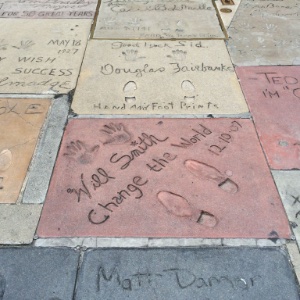 FOR 50 GREAT YEARS
MAY 18
WISH
SUCCESS
Good Luck Sid
Douglas Fairbanks
Hand And Foot Prints
TED
I'M "C
Will Smith
Change the World
12.10.07
Matt Damon